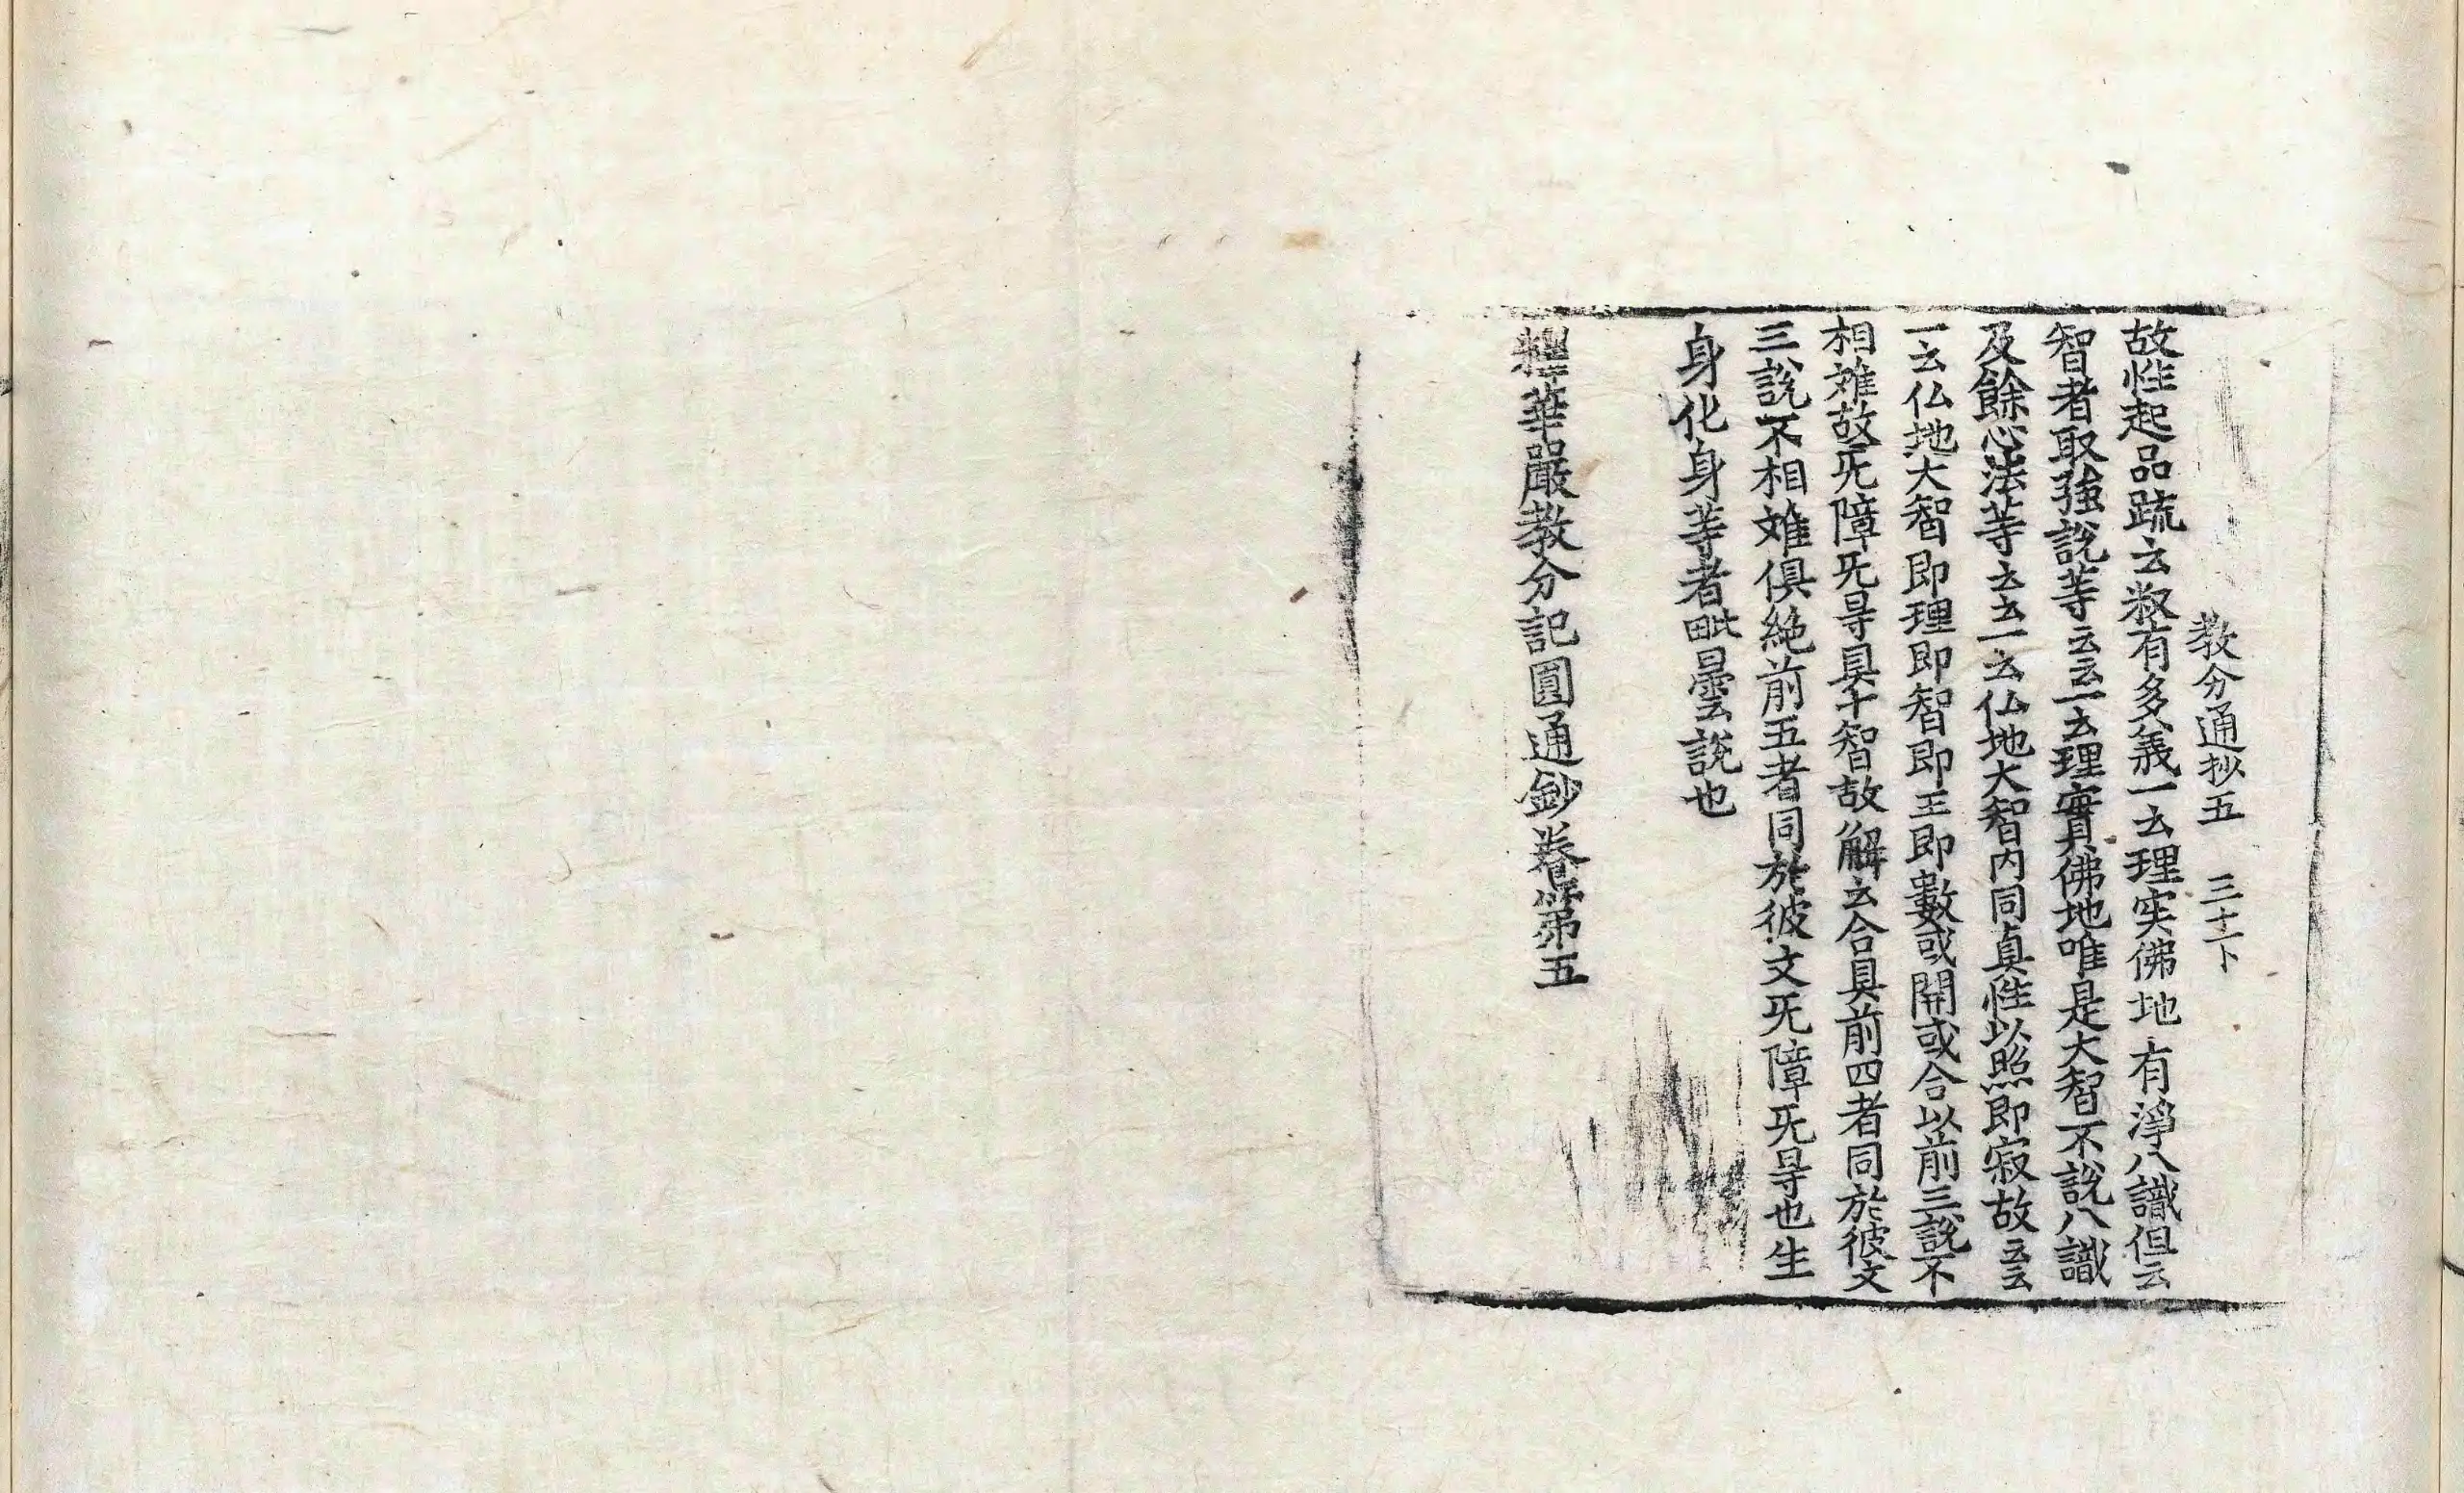 教分通抄五　三十一下
故性起品䟽云然有多義一云理实佛地有淨八識但云
智者取強說等云云一云理實佛地唯是大智不說八識
及餘心法等云云一云仏地大智内同真性以照即寂故云云
一云仏地大智即理即智即王即數或開或合以前三說不
相难故旡障旡㝵具十智故解云合具前四者同於彼文
三說不相难俱絶前五者同於彼文旡障旡㝵也生
身化身等者毗曇說也
釋華嚴教分記圓通鈔卷第五